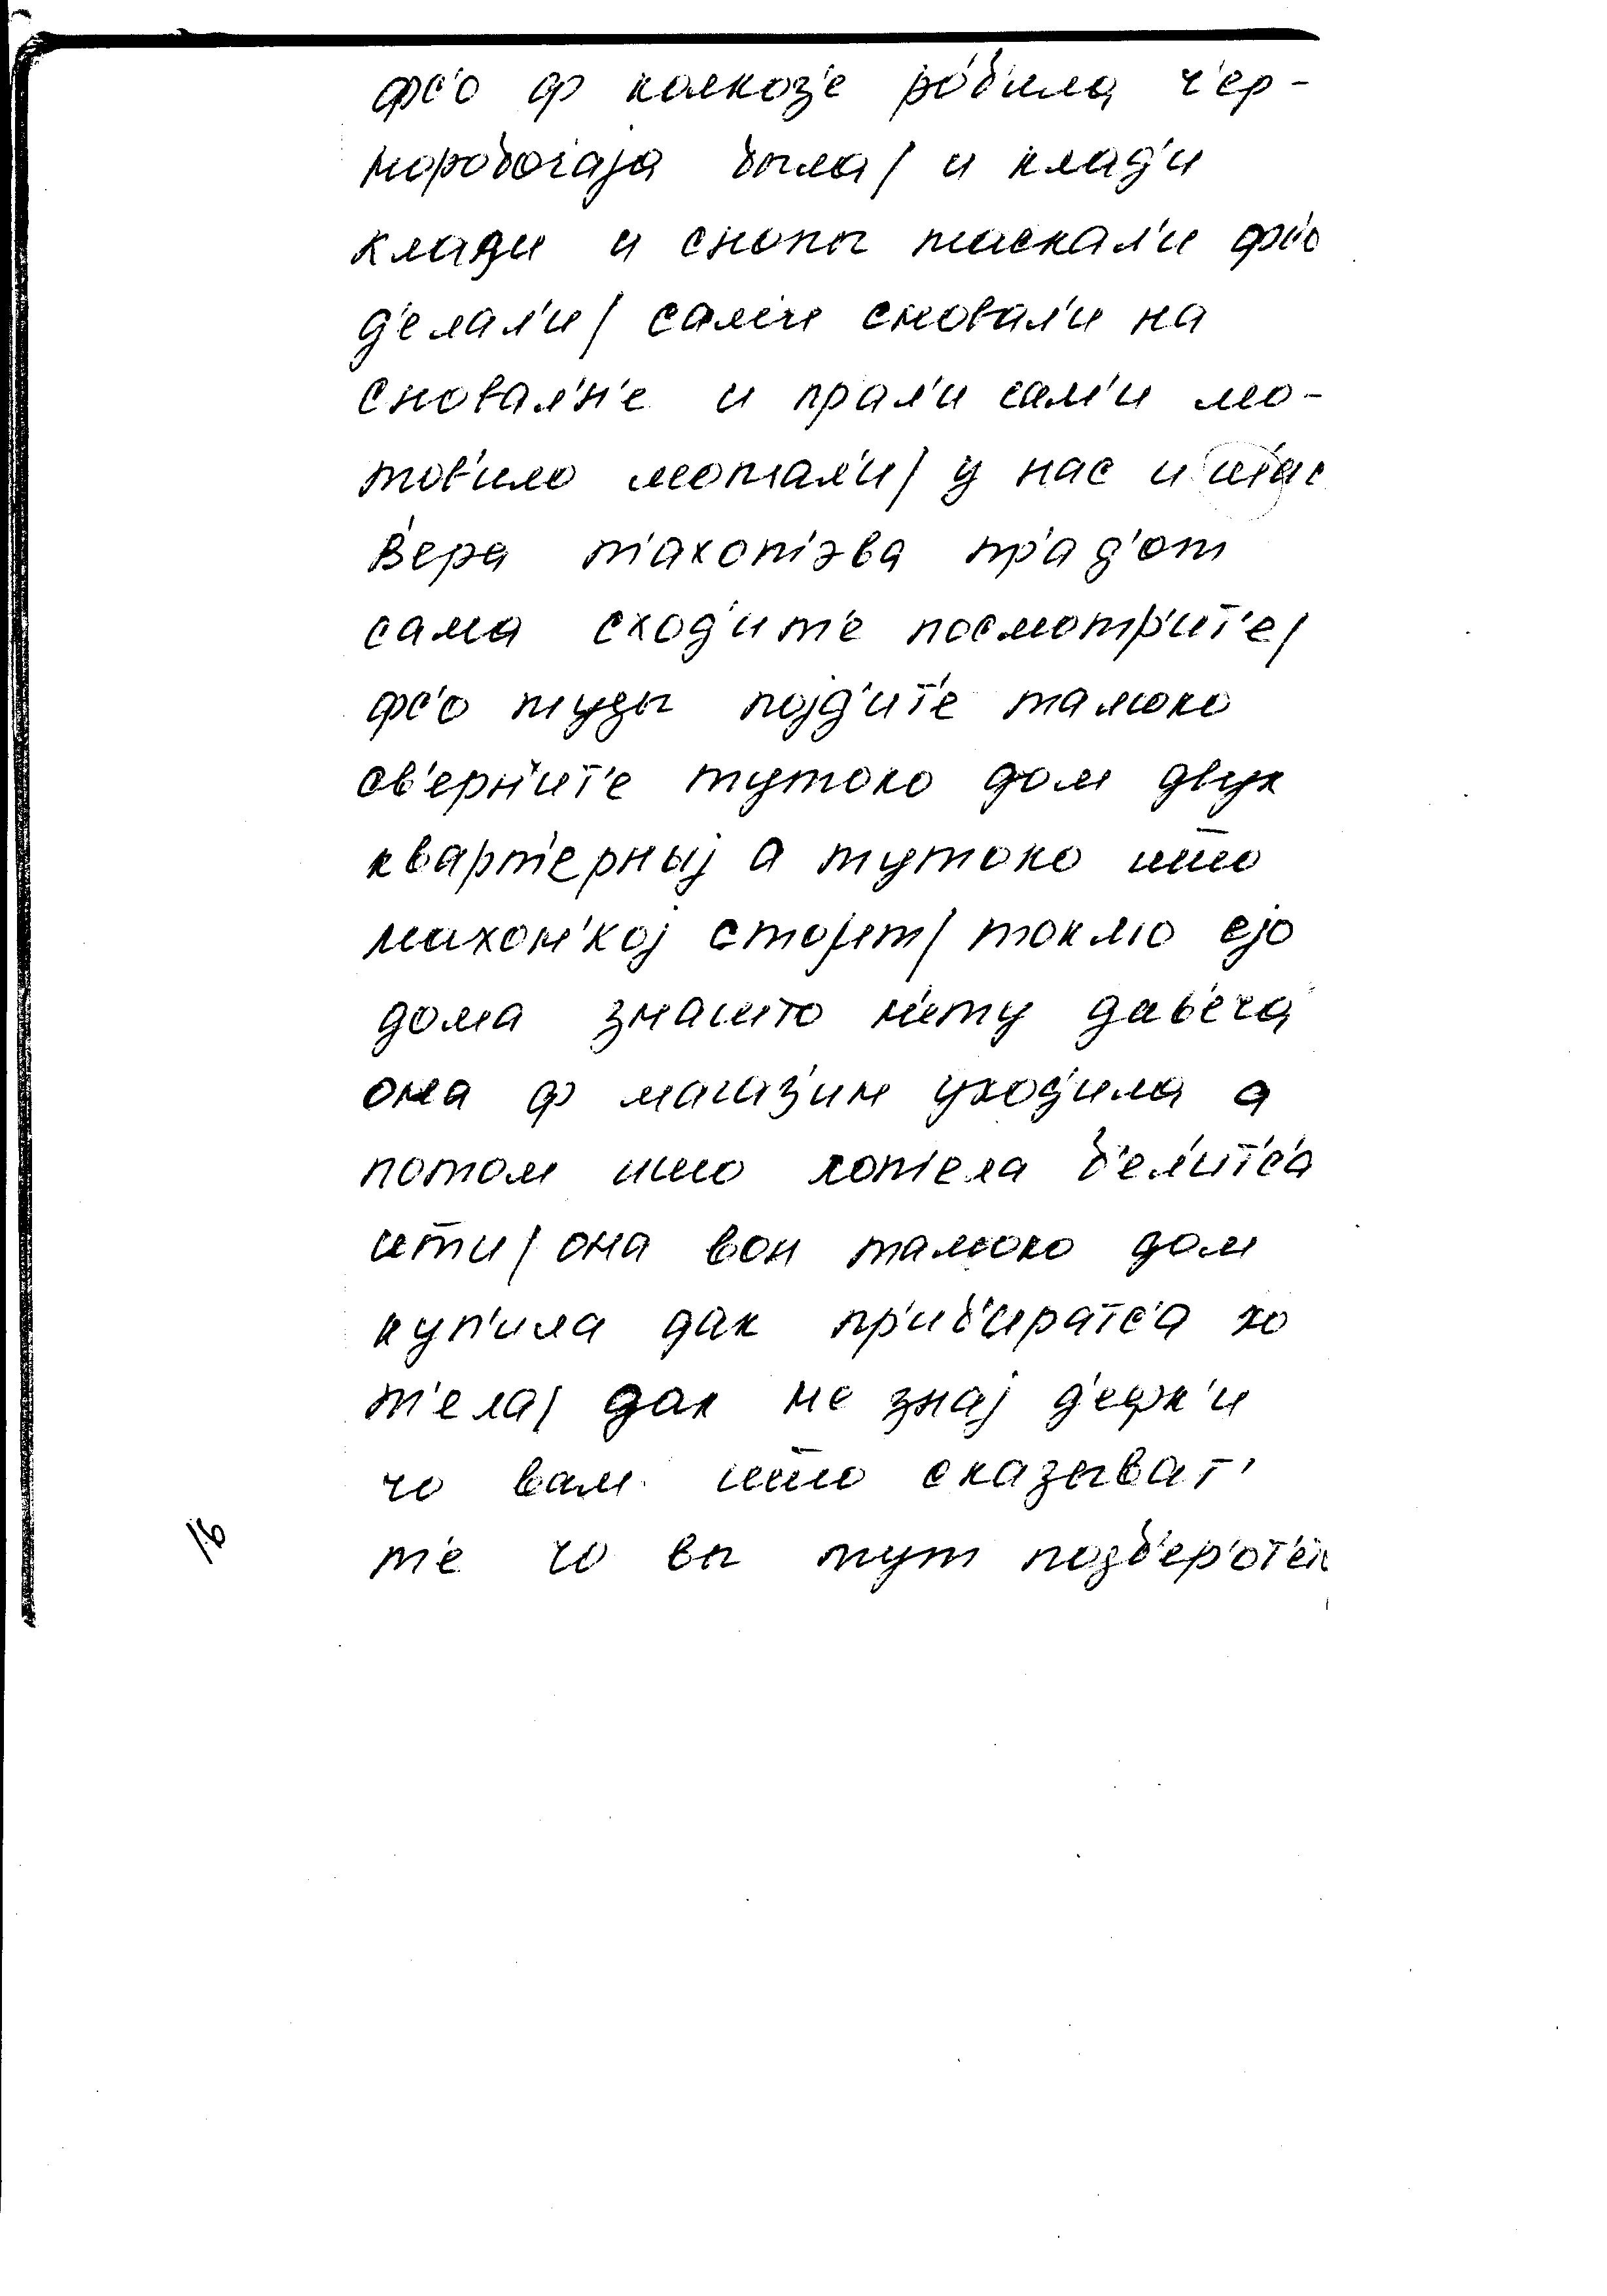 фс'о ф колкоз'е роб'ила ч'ер-
норобочаја была/ и клад'и
клади и снопы таскал'и фс'о
д'елал'и/ сам'и сновал'и на
сновал'н'е и прал'и сам'и мо-
тов'ило мотал'и/ у нас и
В'ера пр'ад'от
сама сход'ит'е посмотр'ит'е/
фс'о туды појд'ит'е тамоко
св'ерн'ит'е тутоко дом двух
кварт'ерныј а тутоко ишшо
махон'кој стојит/ токмо ејо
дома н'ету дав'еча
она ф магаз'ин уход'ила а
потом ишо хот'ела б'ел'итс'а
итти/ она вон тамоко дом
куп'ила дак пр'иб'иратс'а хо
т'ела/ дак не знај д'ефк'и
чо вам ишшо сказыват'
т'е чо вы тут
16